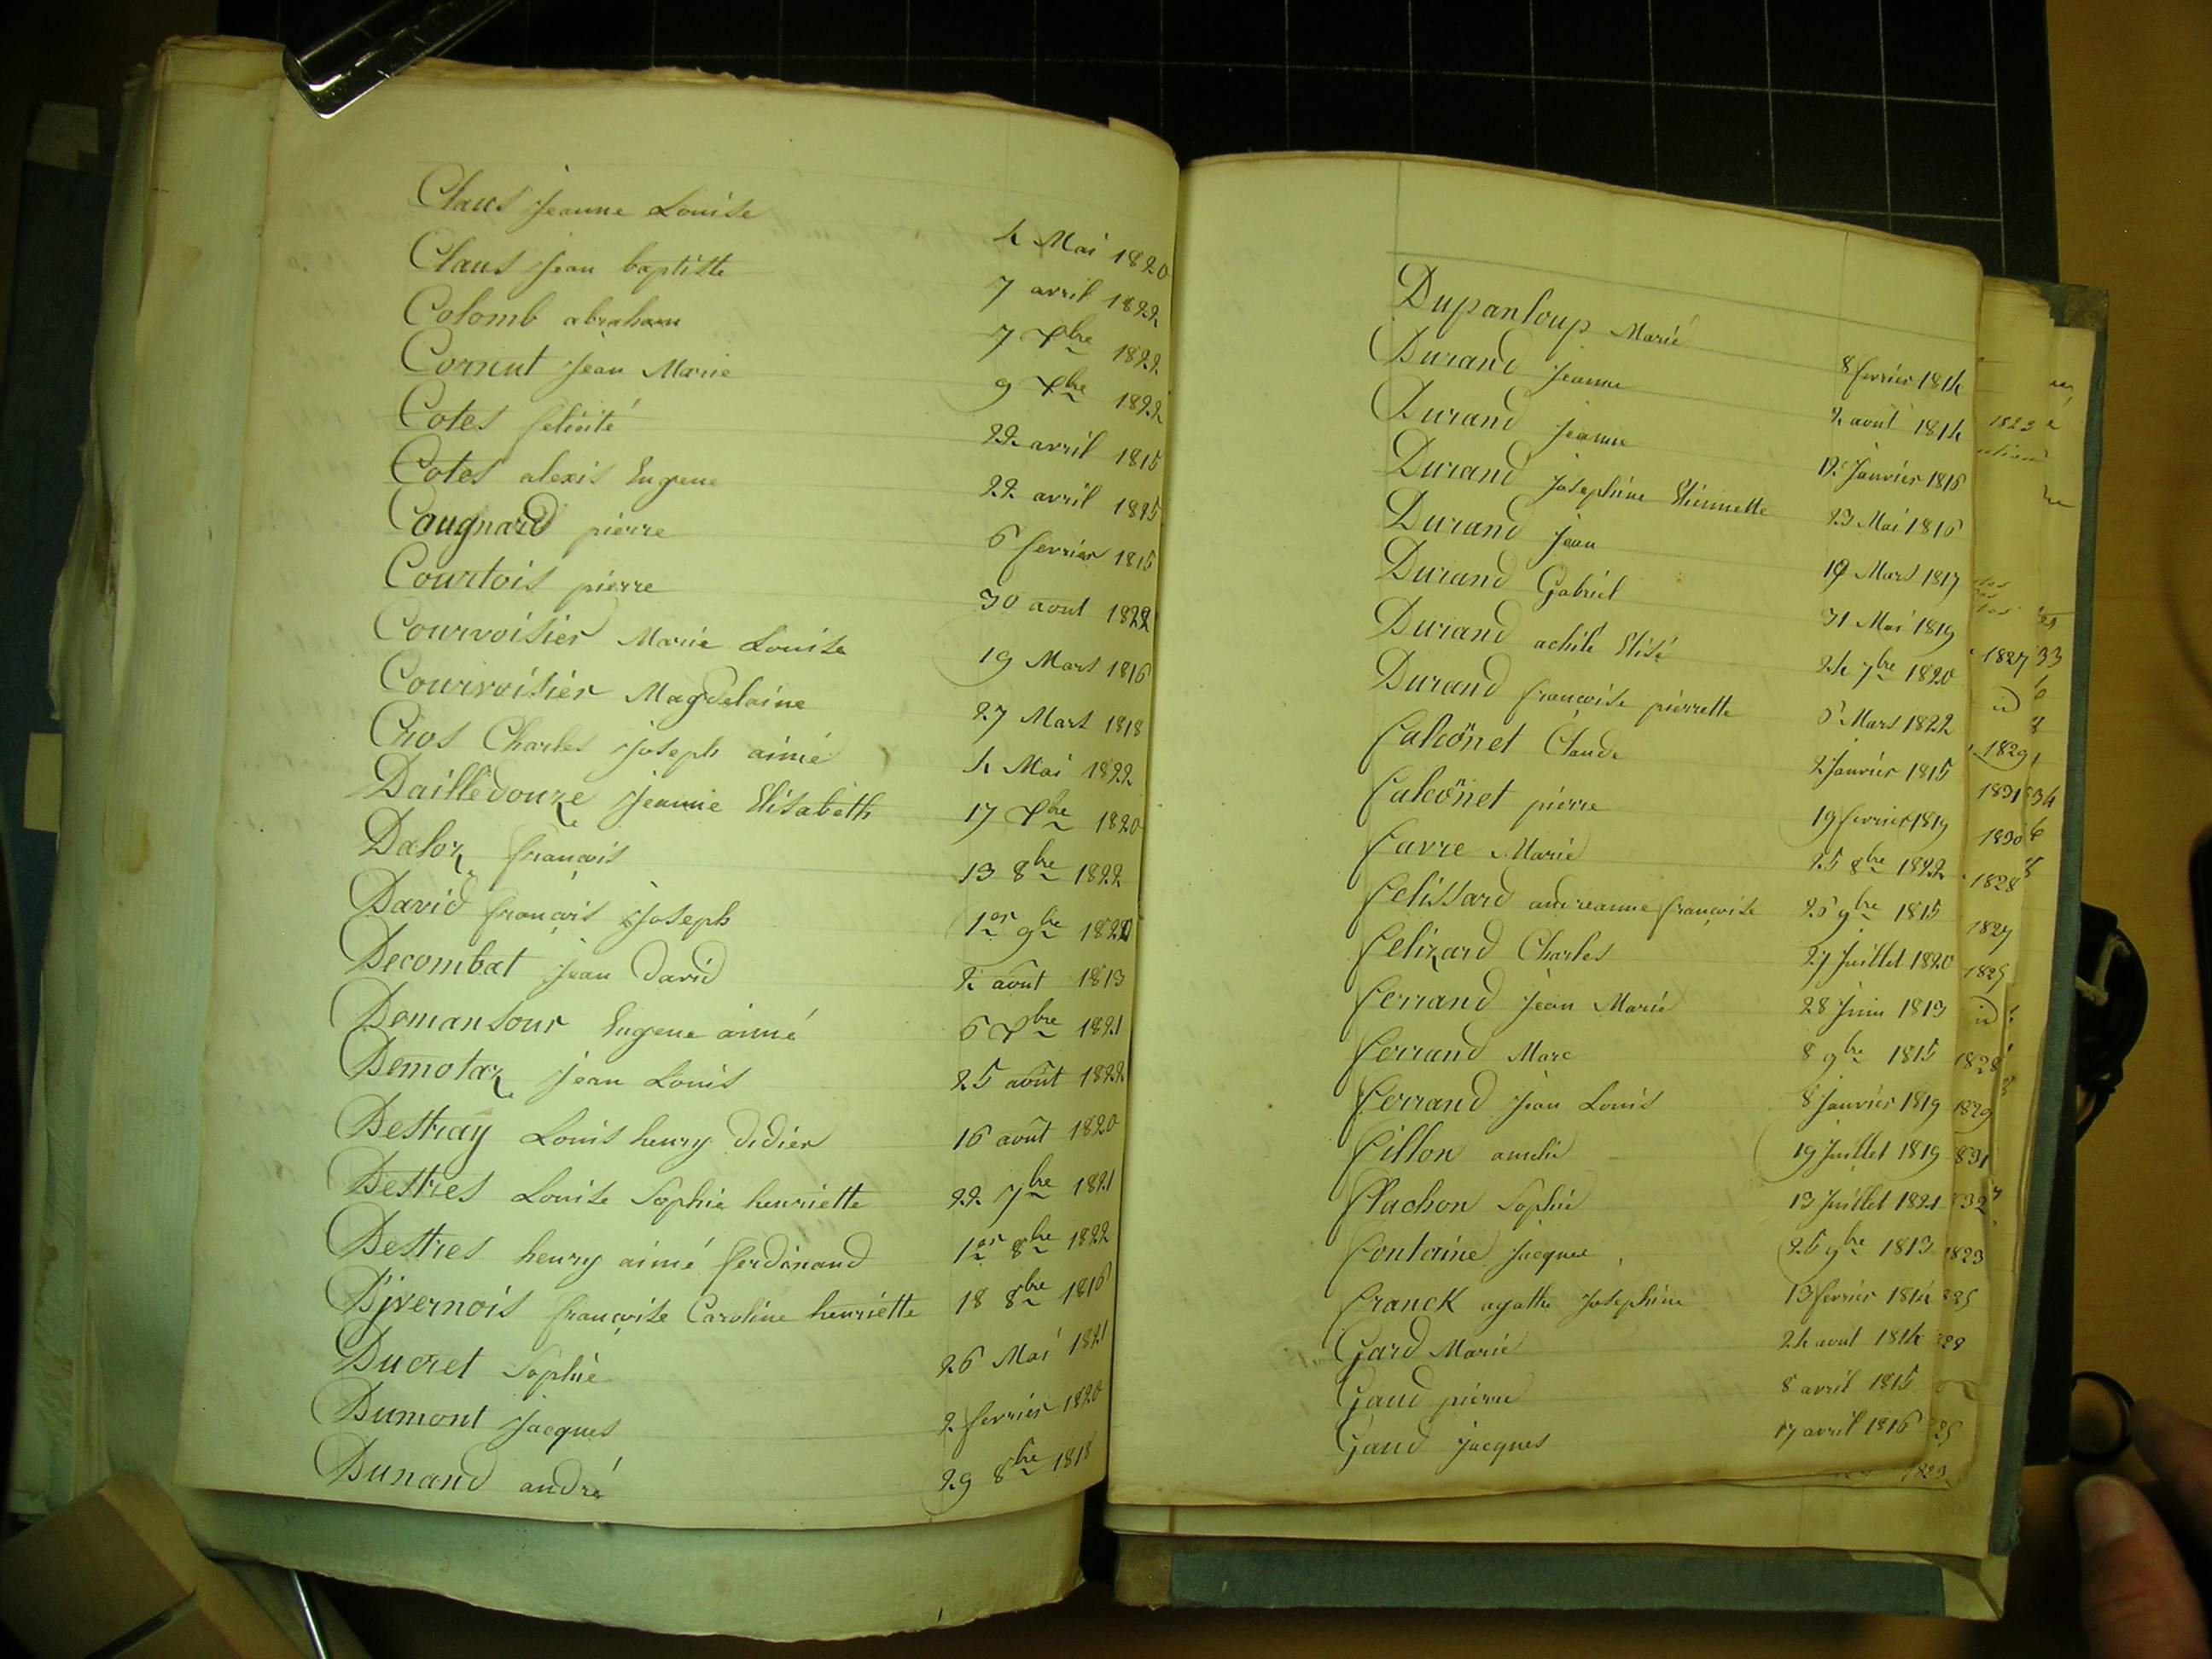 Claus Jeanne Louise 4 Mai 1820
Claus Jean baptiste 7 avril 1822
Colomb abraham 7 Xbre 1822
Cornut Jean Marie 9 Xbre 1822
Cotes felicité 22 avril 1815
Cotes alexis Eugene 22 avril 1815
Cougnard pierre 6 fevrier 1815
Courtois pierre 30 aout 1822
Courvoisier Marie Louise 19 Mars 1816
Courvoisier Magdelaine 27 Mars 1818
Cros Charles Joseph aimé 4 Mai 1822
Dailledouze Jeanne Elisabeth 17 Xbre 1820
Daloz françois 13 8bre 1822
David françois Joseph 1er 9bre 1822
Decombat Jean David 2 août 1813
Demansour Eugene aimé 6 Xbre 1821
Demotaz Jean Louis 25 août 1822
Destray Louis henry didier 16 août 1820
Destres Louise Sophie henriette 22 7bre 1821
Destres henry aimé ferdinand 1er 8bre 1822
D'jvernois françoise Caroline henriette 18 8bre 1816
Ducret Sophie 26 Mai 1821
Dumont Jacques 2 fevrier 1820
Dunand andré 29 8bre 1818
Dupanloup Marie 8 fevrier 1814
Durand Jeanne 2 aout 1814
Durand Jeanne 12 Janvier 1816
Durand Josephine Etiennette 23 Mai 1816
Durand Jean 19 Mars 1817
Durand Gabriel 31 Mai 1819
Durand achile Elisé 24 7bre 1820
Durand françoise pierrette Mars 1822
falconet Claude 2 Janvier 1815
falconet pierre 19 fevrier 1819
favre Marie 25 8bre 1822
felissard andreanne françoise 26 9bre 1815
felizard Charles 27 Juillet 1820
ferrand Jean Marie 28 Juin 1813
ferrand Marc 8 9bre 1815
ferrand Jean Louis 8 Janvier 1819
fillon amelie 19 Juillet 1819
flachon Sophie 13 Juillet 1821
fontaine Jacques 25 9bre 1813
franck agathe Josephine 13 fevrier 1814
Gard Marie 24 aout 1814
Gaud pierre 8 avril 1815
Gaud Jacques 17 avril 1816
1823
1827 33
id
1829
1831 34
1830
1828
1827
1825
id
1828
1829
1823